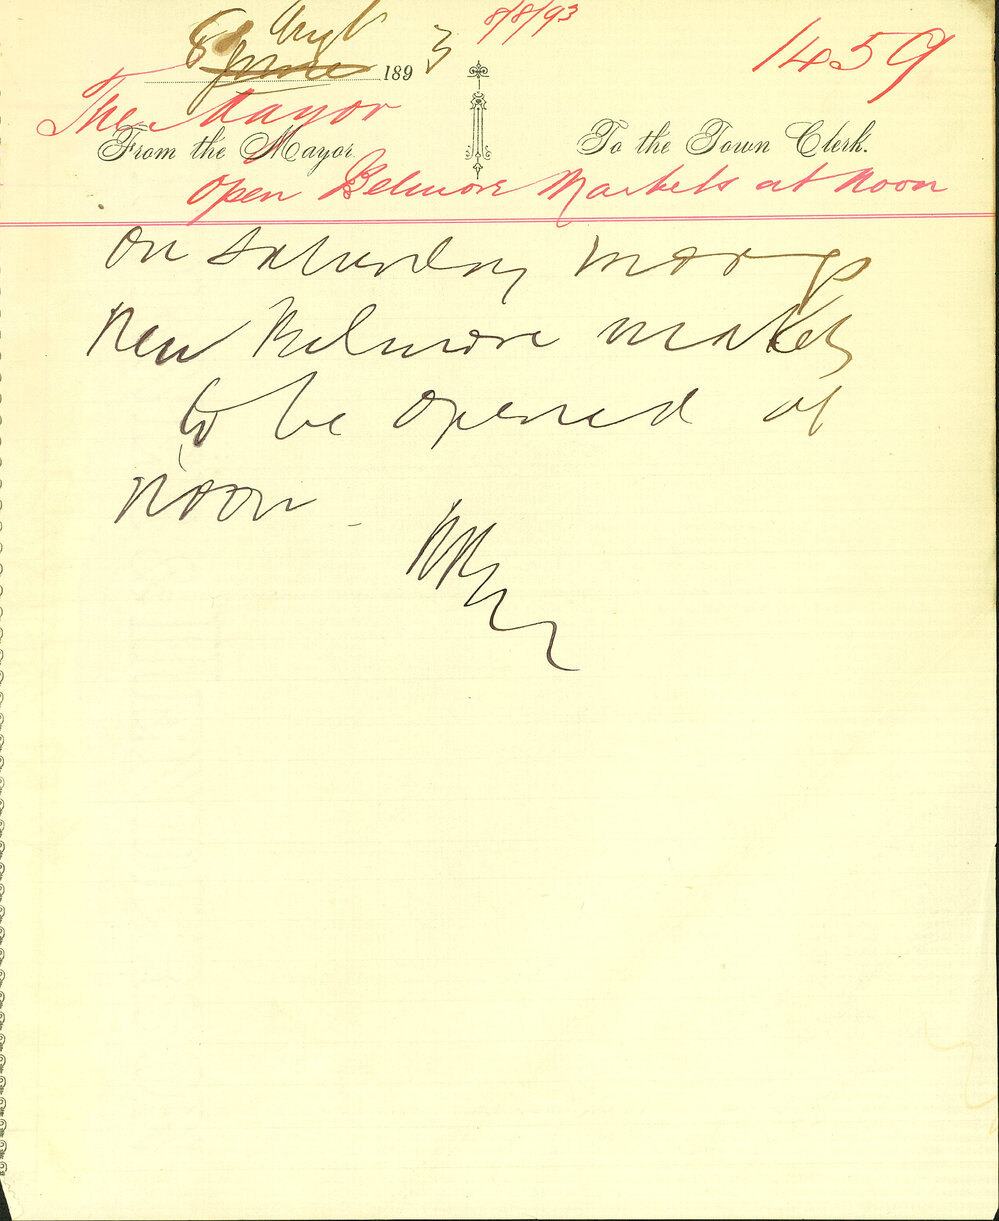 8 Augt 8/8/93
June 1893 1459
The Mayor
From the Mayor. To the Town Clerk.
Open Belmore Markets at Noon
On Saturday
New Belmore markets
to be opened at
noon -